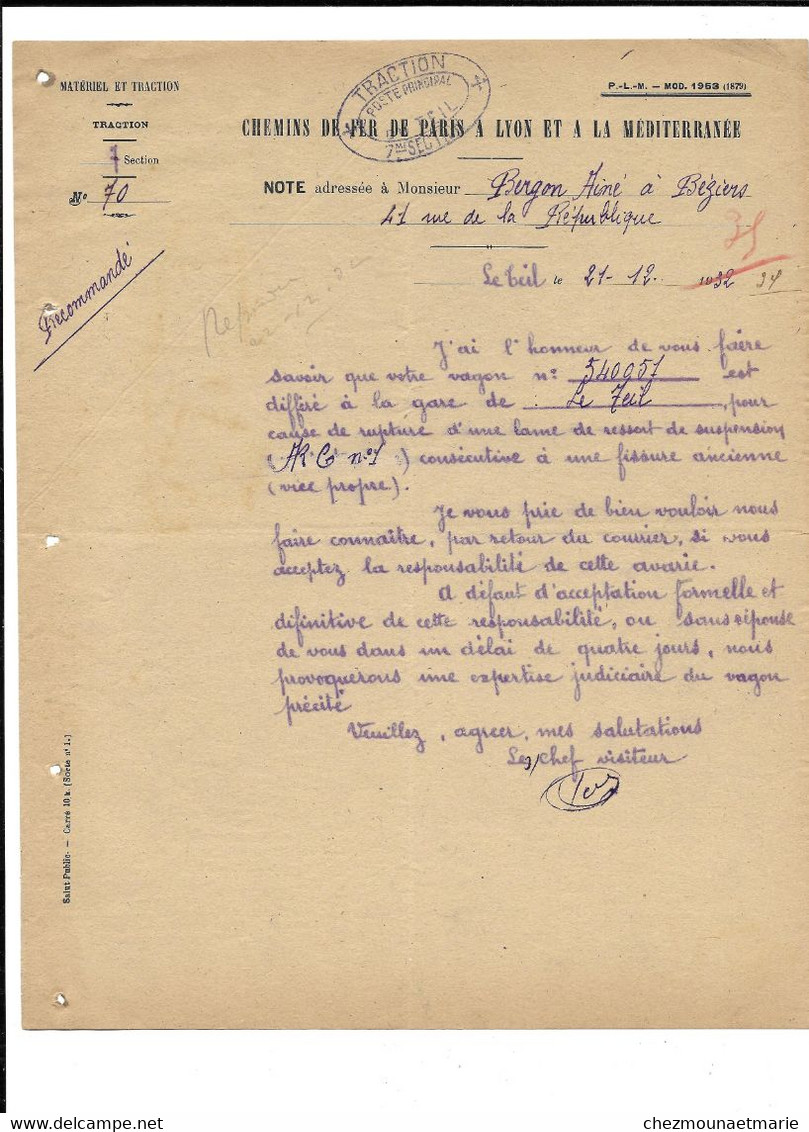 MATÉRIEL ET TRACTION
TRACTION
7 Section
N° 70
Recommandé
TRACTION
POSTE PRINCIPAL
TEIL
7me SECTION
P.-L.-M. — MOD. 1953 (1879)
CHEMINS DE FER DE PARIS A LYON ET A LA MÉDITERRANÉE
NOTE adressée à Monsieur Bergon Ainé à Béziers
41 rue de la République
Le Teil le 21-12. 1932
J'ai l'honneur de vous faire
savoir que votre vagon n°: 540957 est
différé à la gare de Le Teil, pour
cause de rupture d'une lame de ressort de suspension
(AR G n°1) consécutive à une fissure ancienne
(vice propre).
Je vous prie de bien vouloir nous
faire connaître, par retour du courrier, si vous
acceptez la responsabilité de cette avarie.
A défaut d'acceptation formelle et
difinitive de cette responsabilité, ou sans réponse
de vous dans un délai de quatre jours, nous
provoquerons une expertise judiciaire du vagon
précité
Veuillez, agreer, mes salutations
Le chef visiteur
Salut Public. — Carré 10 k. (Sorte n° 1.)
delcampe.net
chezmounaetmarie